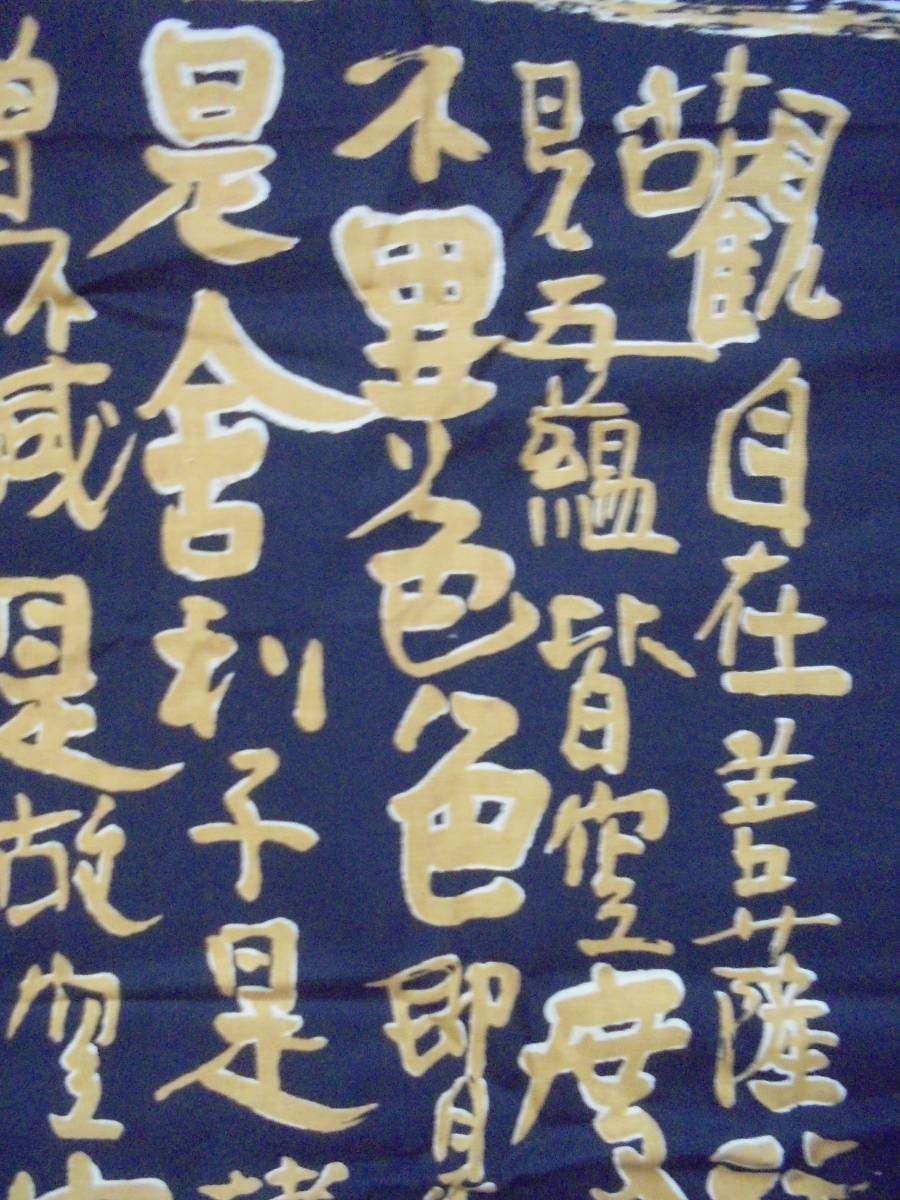 觀自在菩薩
見五蘊皆空度
不異色色即是
是舍利子是諸
增不減是故空中